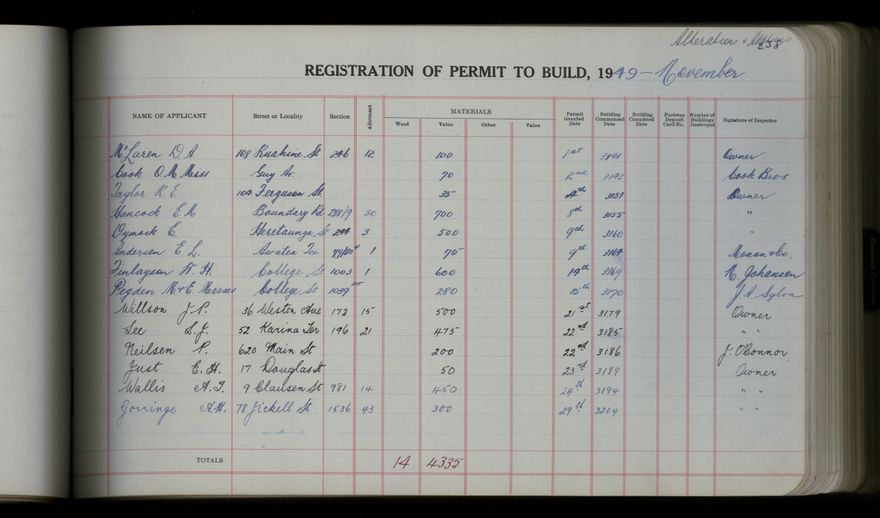 Alterations & Additions
238
REGISTRATION OF PERMIT TO BUILD, 1949 - November
NAME OF APPLICANT Street or Locality Section Allotment MATERIALS Permit Granted Date Building Commenced Date Building Completed Date Footway Deposit Card No. Number of Buildings Destroyed Signature of Inspector
Wood Value Other Value
McLaren D. A. 108 Ruahine St 246 12 100 1st 3141 Owner
Cook O. M. Misses Guy Av. 70 2nd 3145 Cook Bros
Taylor R. E. 104 Ferguson St 35 3151 Owner
Hancock E. A. Boundary Rd 288/9 30 700 8th 3155 "
Dymock E. Heretaunga St 3 500 9th 3160 "
Andersen E. L. Awatea Tce 1 75 9th 3164
Finlayson W. H. College St 1003 1 600 3169 N. Johansen
Pegden M & E. Misses College St 1039 280 15th 3170 J A Sylva
Willson J. P. 36 Weston Ave 172 15 500 21st 3179 Owner
Lee L. J. 52 Karina Ter 196 21 475 22nd 3185 " "
Neilsen P. 620 Main St 200 22nd 3186 J. O'Connor
Just E. H. 17 Douglas St 50 23rd 3189 Owner
Wallis A. J. 9 Clausen St 981 14 450 24th 3194 " "
Gorringe A. H. 78 Jickell St 1536 43 300 29th 3204 " "
TOTALS 14 4335